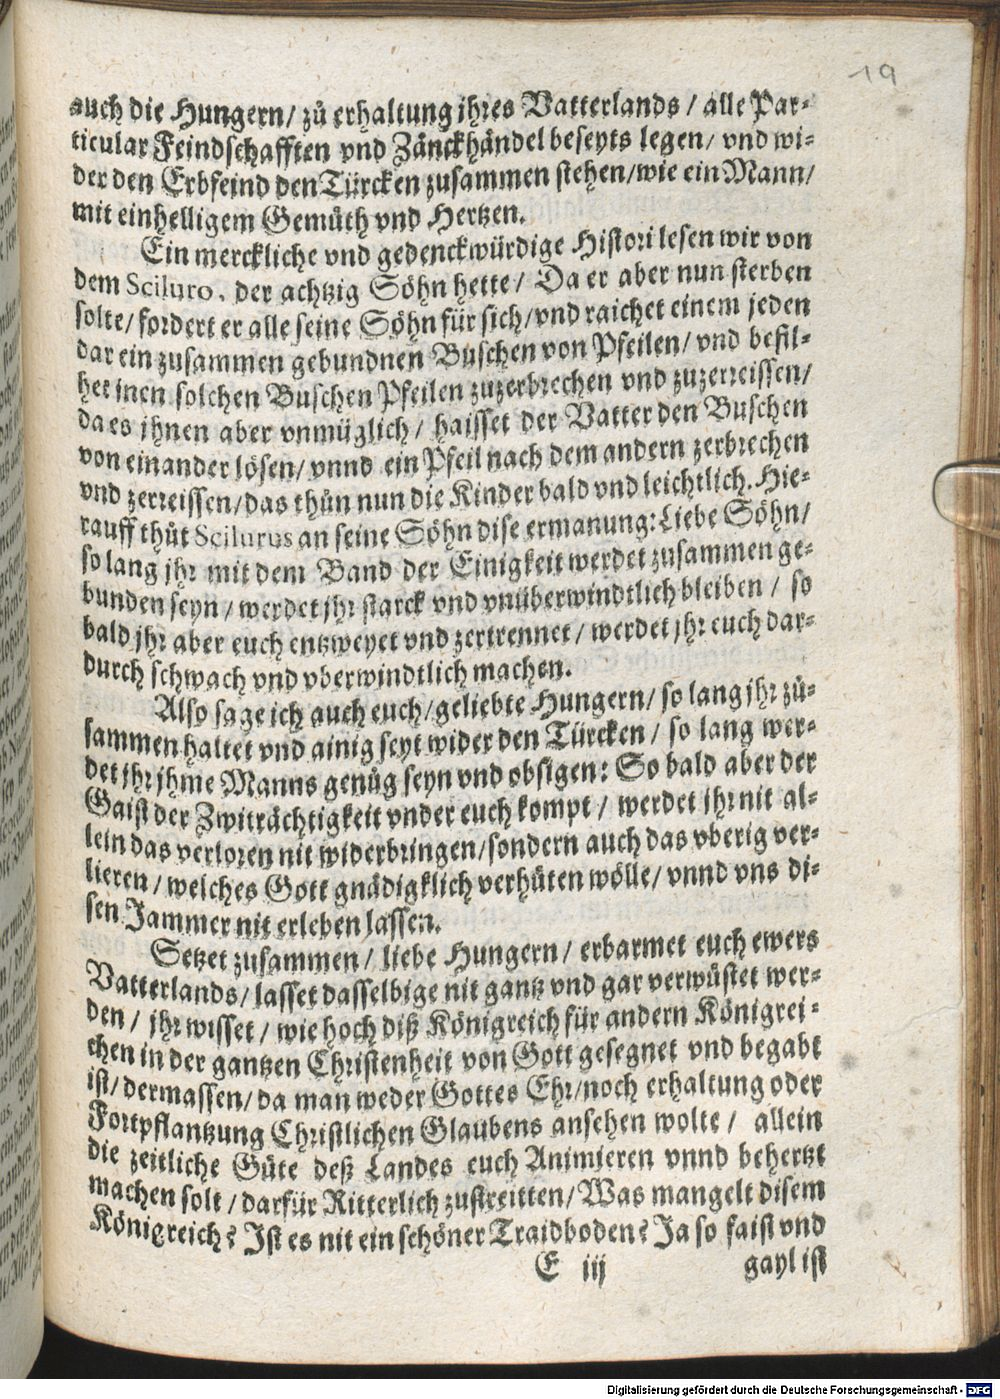 19
auch die Hungern/ zů erhaltung jhres Vatterlands / alle Par-
ticular Feindschafften vnd Zänckhändel beseyts legen/ vnd wi-
der den Erbfeind den Türcken zusammen stehen/ wie ein Mann/
mit einhelligem Gemüth vnd Hertzen.
Ein merckliche vnd gedenckwürdige Histori lesen wir von
dem Sciluro, der achtzig Söhn hette/ Da er aber nun sterben
solte/ fordert er alle seine Söhn für sich/ vnd raichet einem jeden
dar ein zusammen gebundnen Buschen von Pfeilen/ vnd befil-
het inen solchen Buschen Pfeilen zuzerbrechen vnd zuzerreissen/
da es jhnen aber vnmüglich/ haisset der Vatter den Buschen
von einander lösen/ vnnd ein Pfeil nach dem andern zerbrechen
vnd zerreissen/ das thůn nun die Kinder bald vnd leichtlich. Hie-
rauff thůt Scilurus an seine Söhn dise ermanung: Liebe Söhn/
so lang jhr mit dem Band der Einigkeit werdet zusammen ge-
bunden seyn/ werdet jhr starck vnd vnüberwindtlich bleiben / so
bald jhr aber euch entzweyet vnd zertrennet/ werdet jhr euch dar-
durch schwach vnd vberwindtlich machen.
Also sage ich auch euch/ geliebte Hungern/ so lang jhr zů-
sammen haltet vnd ainig seyt wider den Türcken / so lang wer-
det jhr jhme Manns genůg seyn vnd obsigen: So bald aber der
Gaist der Zwiträchtigkeit vnder euch kompt / werdet jhr nit al-
lein das verloren nit widerbringen/ sondern auch das vberig ver-
lieren / welches Gott gnädigklich verhüten wölle/ vnnd vns di-
sen Jammer nit erleben lassen.
Setzet zusammen / liebe Hungern / erbarmet euch ewers
Vatterlands/ lasset dasselbige nit gantz vnd gar verwüstet wer-
den / jhr wisset / wie hoch diß Königreich für andern Königrei-
chen in der gantzen Christenheit von Gott gesegnet vnd begabt
ist/ dermassen/ da man weder Gottes Ehr/ noch erhaltung oder
Fortpflantzung Christlichen Glaubens ansehen wolte / allein
die zeitliche Güte deß Landes euch Animieren vnnd behertzt
machen solt / darfür Ritterlich zustreitten/ Was mangelt disem
Königreich? Ist es nit ein schöner Traidboden? Ja so faist vnd
E iij
gayl ist
Digitalisierung gefördert durch die Deutsche Forschungsgemeinschaft - DFG